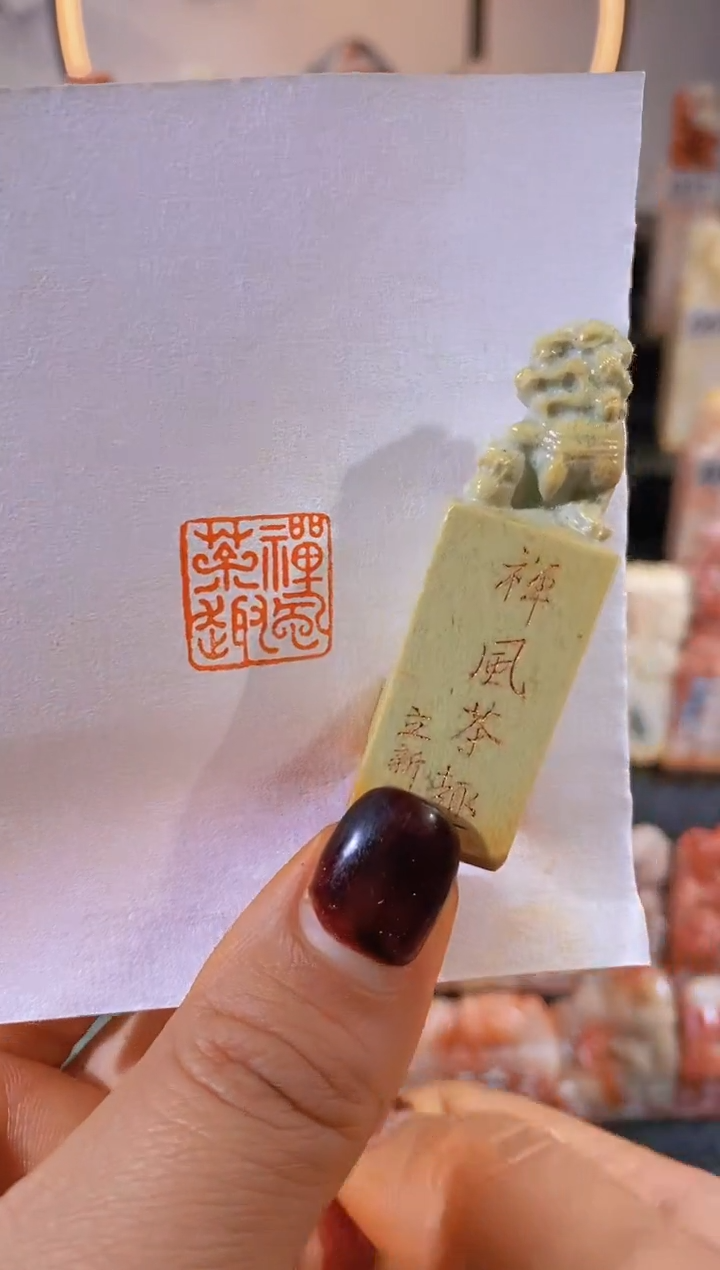 禪風
茶趣
禅風茶趣
立新